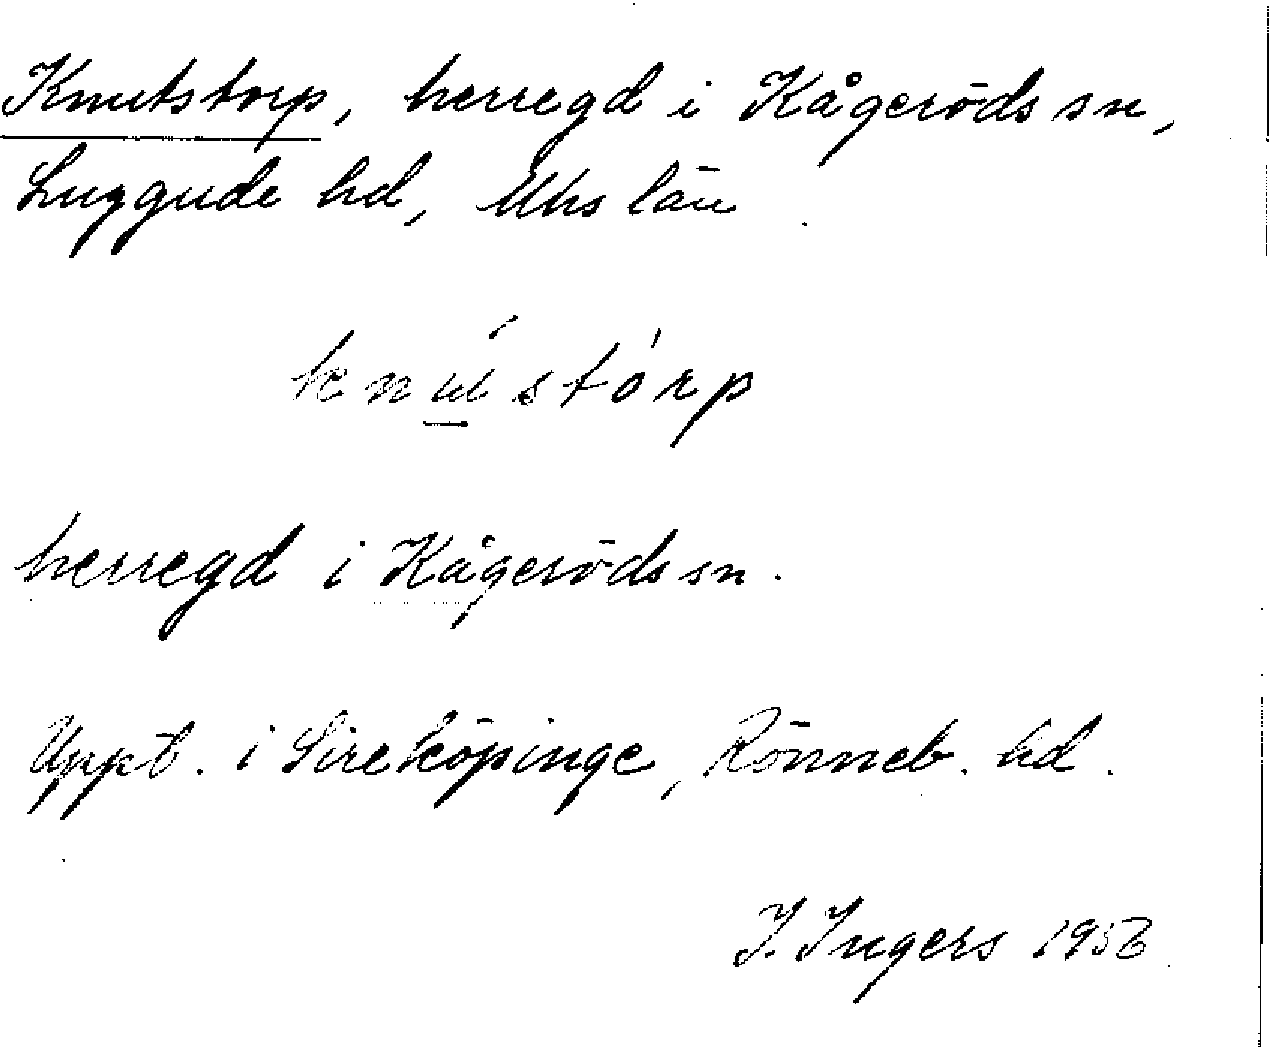 Knutstorp, herregd i Kågeröds sn,
Luggude hd, Mhs län
herregd i Kågeröds sn.
Uppt. i Sireköpinge, Rönneb. hd.
I. Ingers